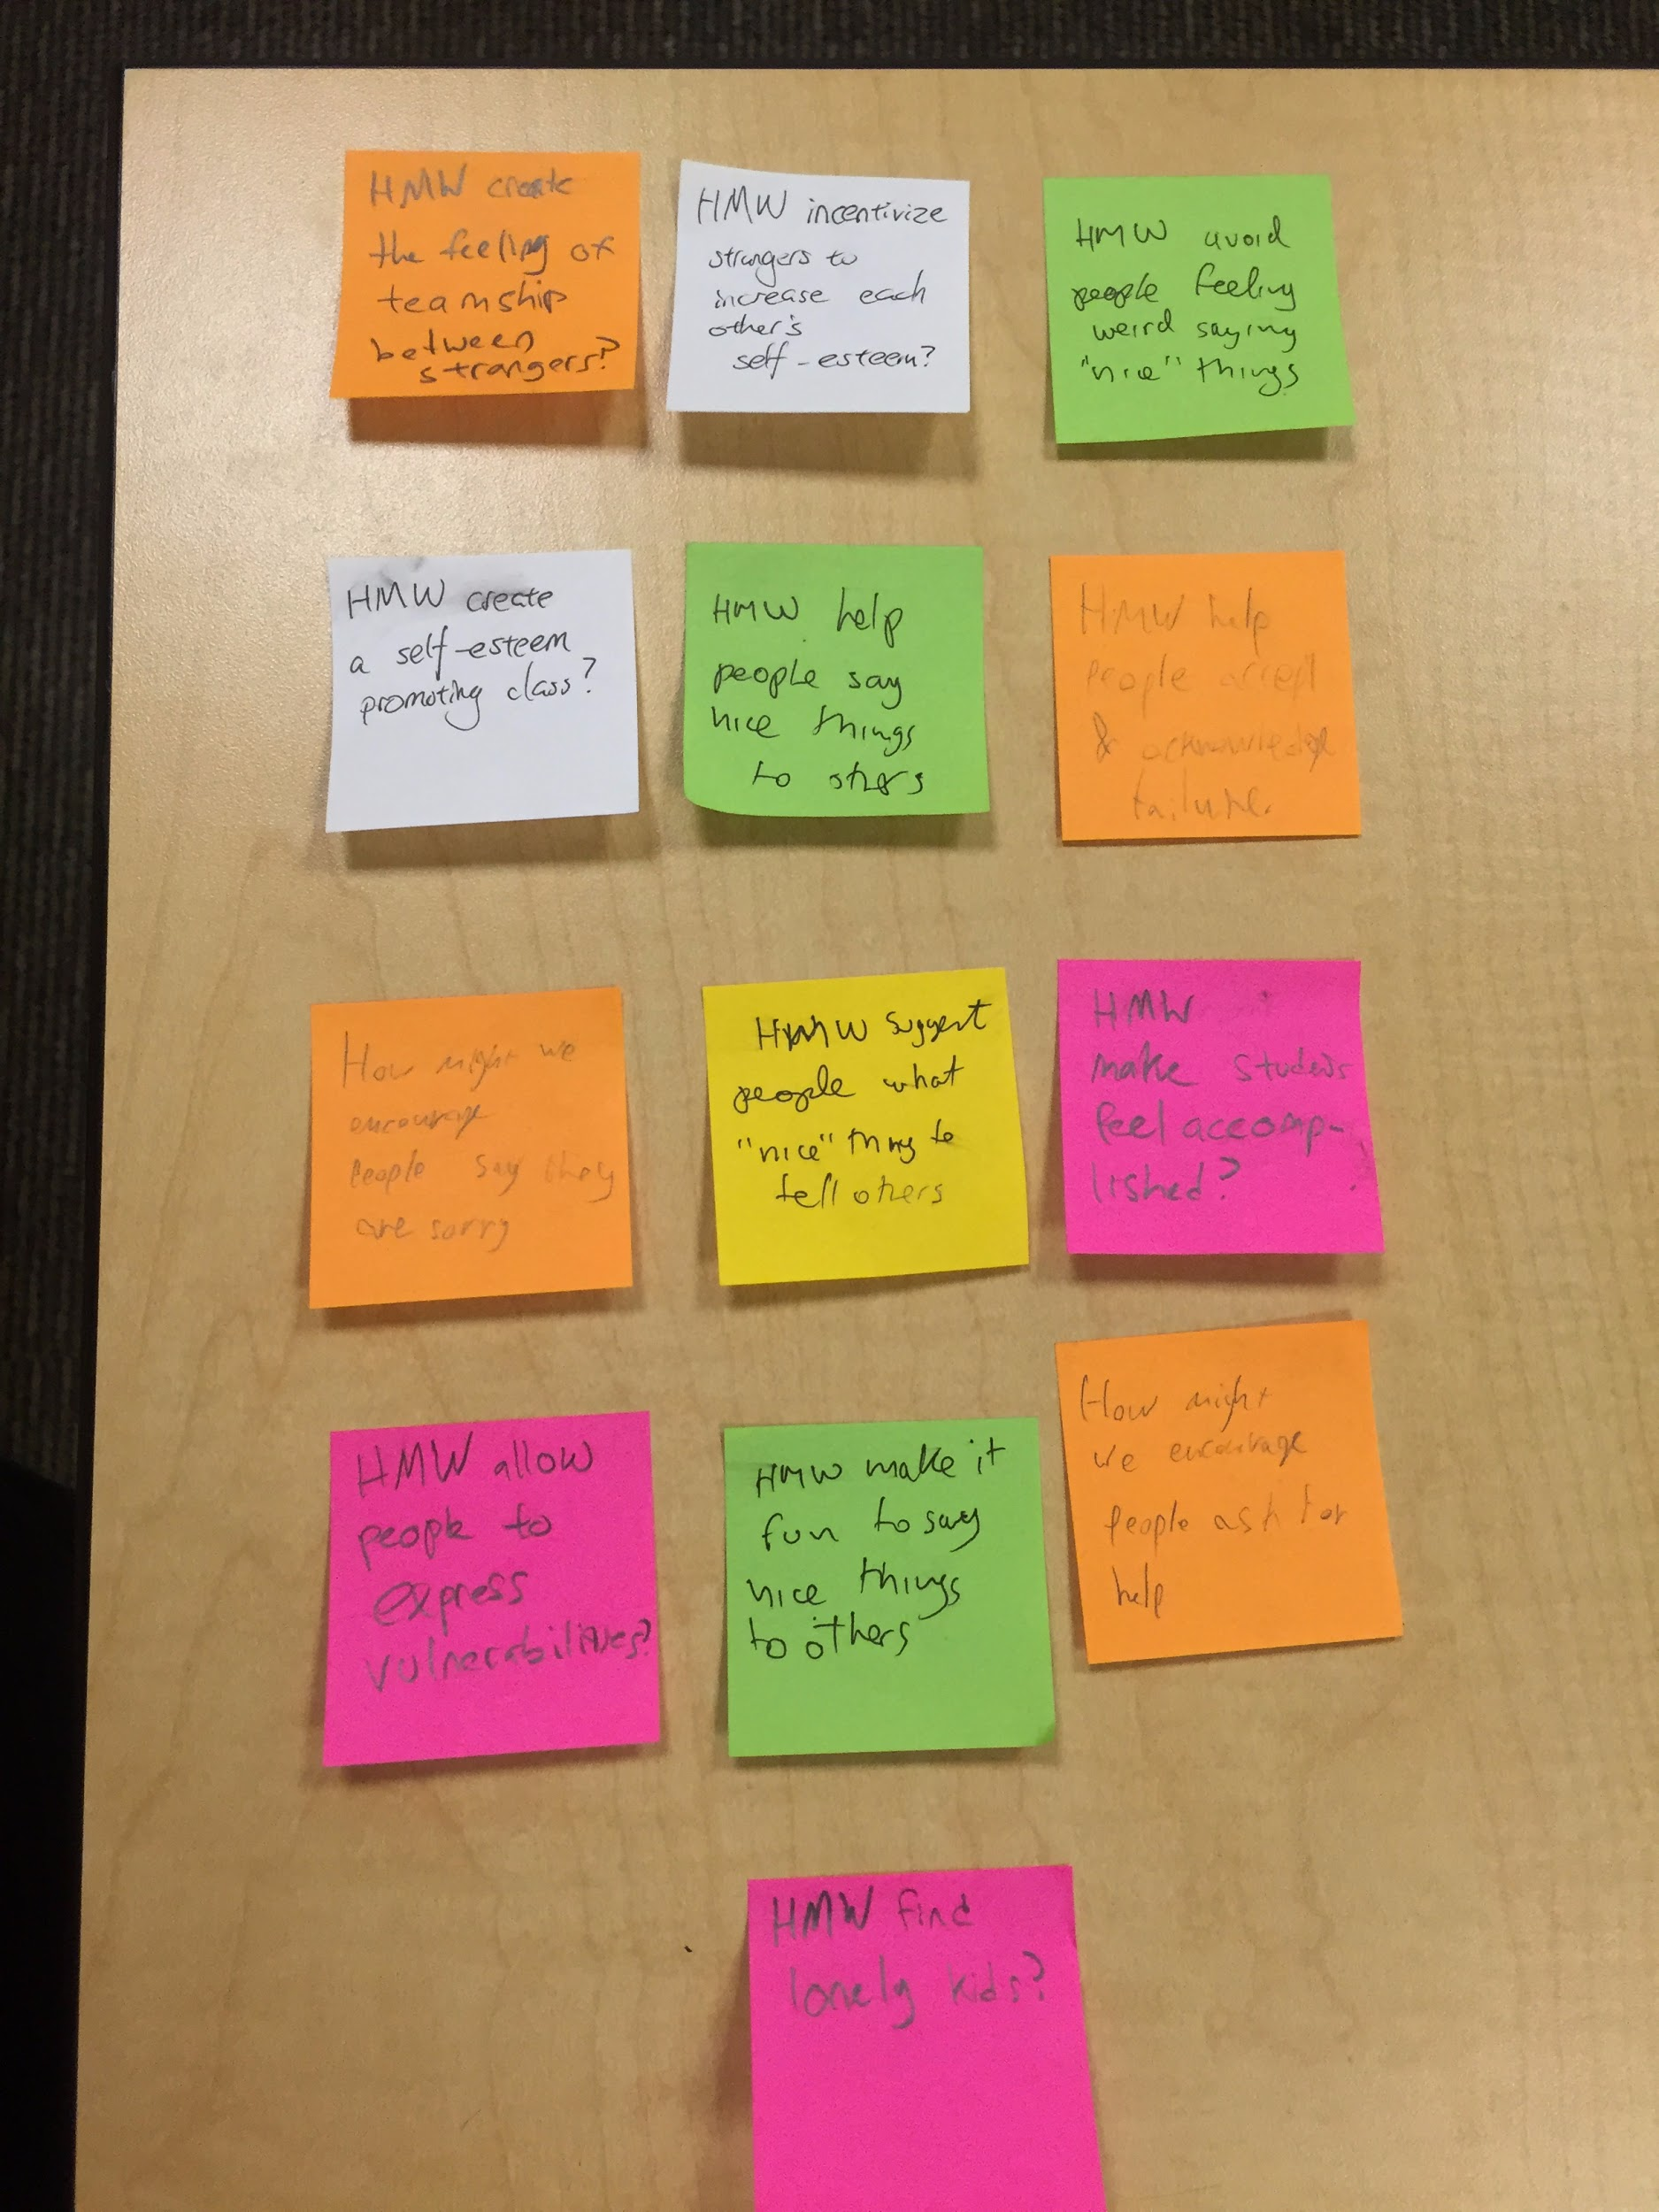 HMW create
the feeling of
teamship
between
strangers?
HMW incentivize
strangers to
increase each
other's
self-esteem?
HMW avoid
people feeling
weird saying
"nice" things
HMW create
a self-esteem
promoting class?
HMW help
people say
nice things
to others
HMW help
People accept
& acknowledge
failure.
How might we
encourage
People say they
are sorry
HMW suggest
people what
"nice" thing to
tell others
HMW
make students
feel accomp-
lished?
HMW allow
people to
express
vulnerabilities?
HMW make it
fun to say
nice things
to others
How might
we encourage
People ask for
help
HMW find
lonely kids?